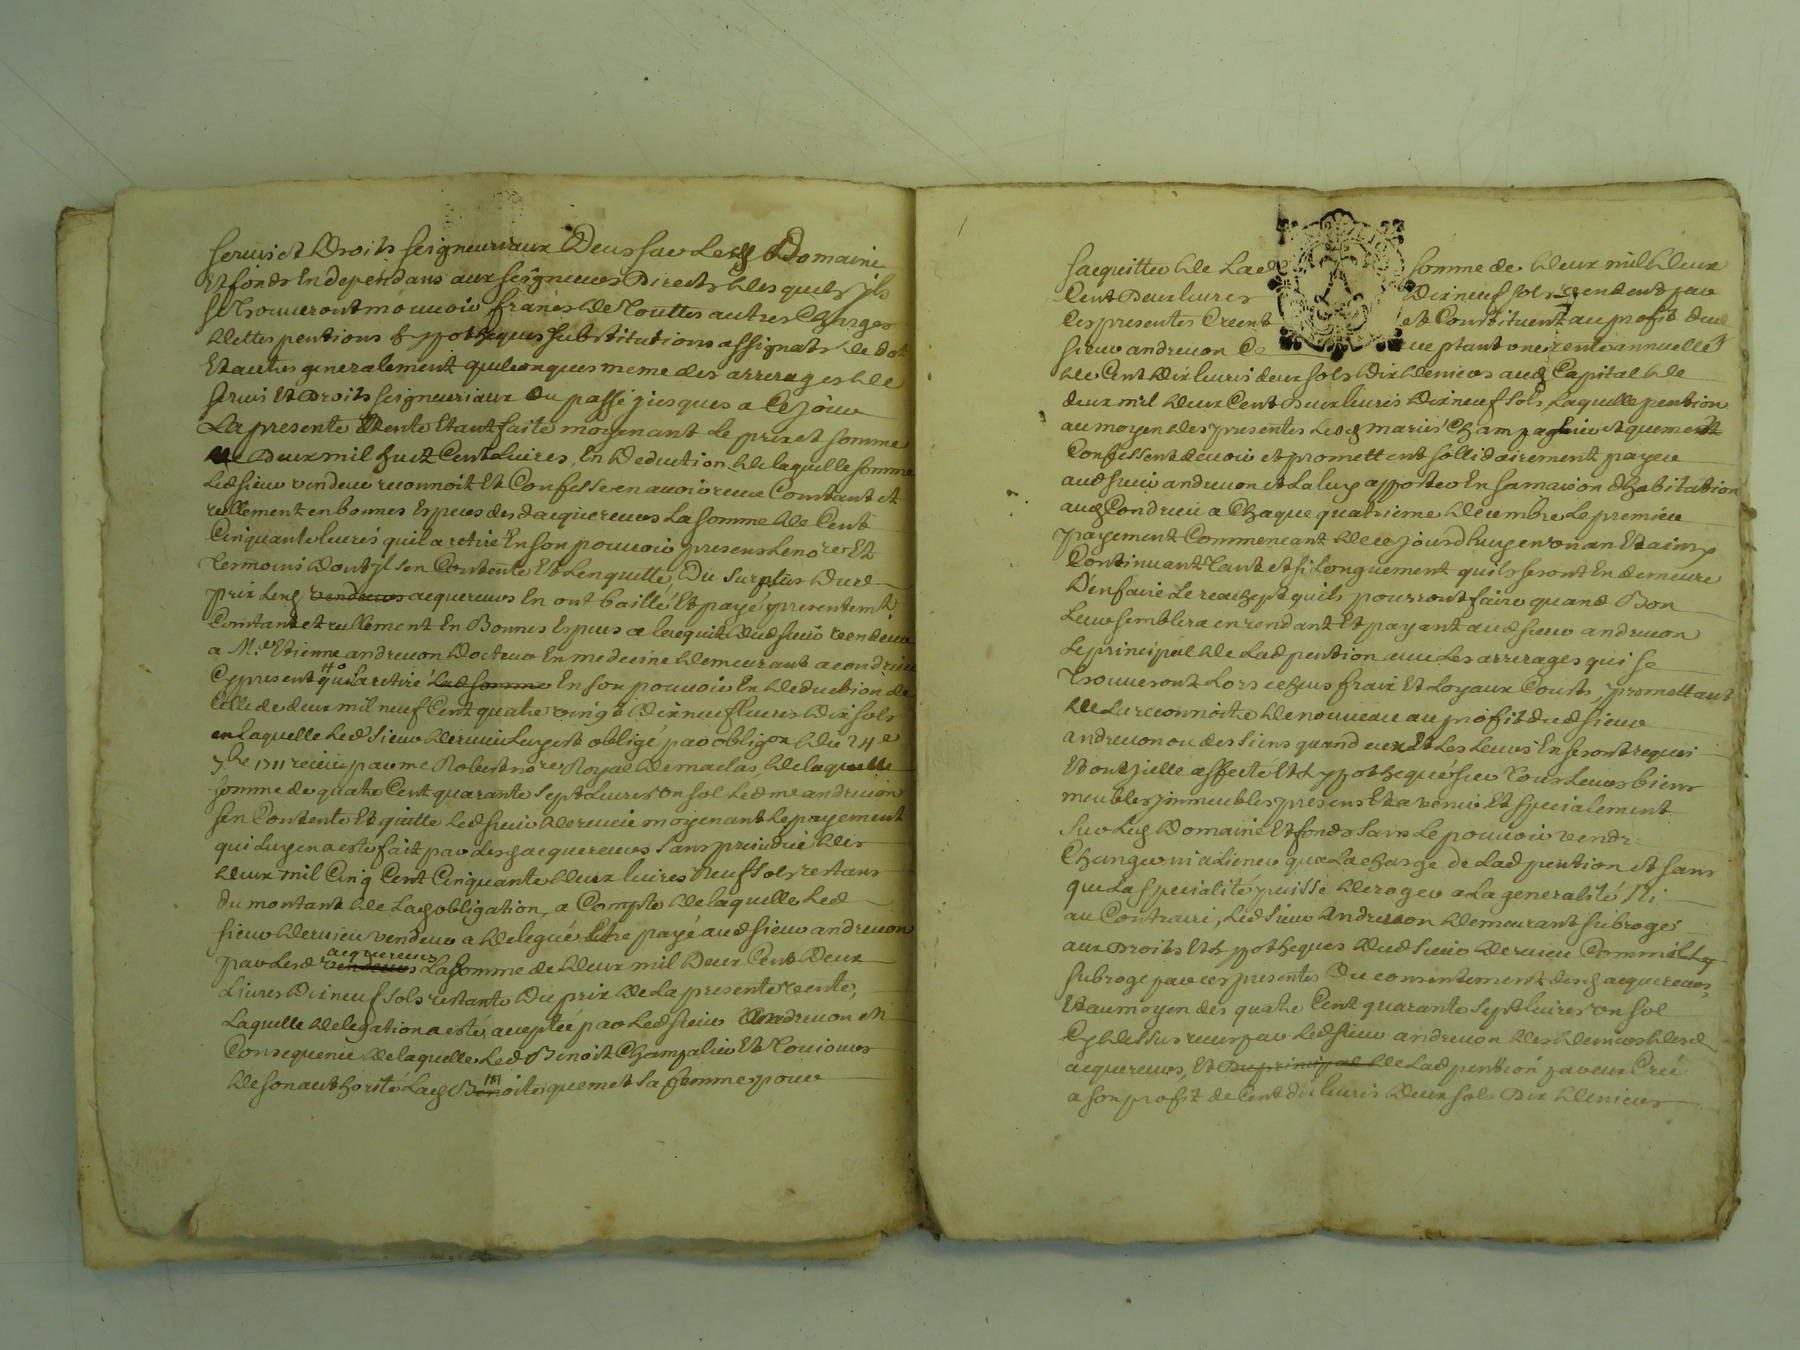 servis et Droits seigneuriaux Deus sur Lesd Domaine
Et fonds En dependans aux seigneurs Directs desquels jls
se trouveront mouvoir, francs de Touttes autres Charges
dettes pentions hypotheques substitutions assignats de dot
Et autres generalement quelconques meme des arrerages de
servis Et Droits seigneuriaux du passé jusques a Ce jour
La presente Vente Etant faite moyenant Le prix et somme
de Deux mil huit Cent Livres, En deduction de laquelle somme
Led sieur vendeur reconnoit Et Confesse en avoir receu Comtant et
reellement en bonnes Especes desd acquereurs La somme de Cent
Cinquante livres quil a retiré En son pouvoir presens Le nore Et
Temoins dont jl sen Contente Et Len quitte, Du surplus dud
prix Lesd vendeurs acquereurs En ont baillé Et payé presentemt
Comtant et reellement En Bonnes Especes a lacquit dud sieur vendeur
a Mre Etienne andrevon docteur En medecine demeurant a condrieu
Cy present qui La retiré Lad somme En son pouvoir En deduction de
Celle de deux mil neuf Cent quatre vingt dix neuf livres dix sols
en Laquelle Led sieur dervieu Luy est obligé par obligon du 24e
7bre 1711 receue par me Robert nore Royal de maclas, de laquelle
somme de quatre Cent quarante sept Livres un sol Led me andrevon
sen Contente Et quitte Led sieur dervieu moyenant Le payement
qui Luy en a esté fait par Lesd acquereurs sans prejudice des
deux mil Cinq Cent Cinquante deux livres Neuf sols restans
du montant de Lad obligation, a Compte de laquelle Led
sieur dervieu vendeur a delegué Etre payé aud sieur andrevon
acquereurs
par Lesd vendeurs La somme de deux mil Deux Cent Deux
Livres Dix neuf sols restante Du prix de La presente vente,
Laquelle delegation a esté acceptée par Led sieur Andrevon En
Consequence de laquelle Led Benoit Champalier Et Toujours
de son authorité Lad Benoite quemet sa femme pour
sacquitter de Lad somme de deux mil deux
Cent Deux livres Dix neuf sols vendent par
Ces presentes Creent et Constituent au profit dud
sieur andrevon une rente annuelle
de Cent dix livres deux sols dix deniers aud Capital de
deux mil deux Cent Deux livres dix neuf sols, Laquelle pention
au moyen des presentes Lesd mariés Champalier et quemet
Confessent devoir et promettent sollidairement payer
aud sieur andrevon et La luy apporter En sa maison d'habitation
aud Condrieu a Chaque quatrieme decembre Le premier
payement Commencant de ce jourdhuy en un an Et ainsy
Continuant Tant et si Longuement quils seront En demeure
D'en faire Le reachept quils pourront faire quand Bon
Leur semblera en rendant Et payant aud sieur andrevon
Le principal de Lad pention avec Les arrerages qui se
Trouveront Lors echeus fraix Et Loyaux Couts, promettant
de La reconnoitre de nouveau au profit dud sieur
andrevon ou des siens quand eux Et Les Leurs En seront requis
Et ont jcelle affecté Et hypothequé sur Tous Leurs biens
meubles jmmeubles presens Et a venir Et specialement
sur Lesd Domaine Et fonds sans Le pouvoir vendre
Changer ni aliener qua La charge de Lad pention et sans
que La specialité puisse deroger a La generalité Ni
au Contraire, Led sieur Andrevon demeurant subrogé
aux Droits Et hypotheques dud sieur dervieu Comme il Ly
subroge par ces presentes Du consentement desd acquereurs,
Et au moyen des quatre Cent quarante sept livres un sol
Cy dessus receus par Led sieur andrevon des deniers desd
acquereurs, Et Du principal de Lad pention par eux Créé
a son profit de Cent dix livres deux sols Dix deniers